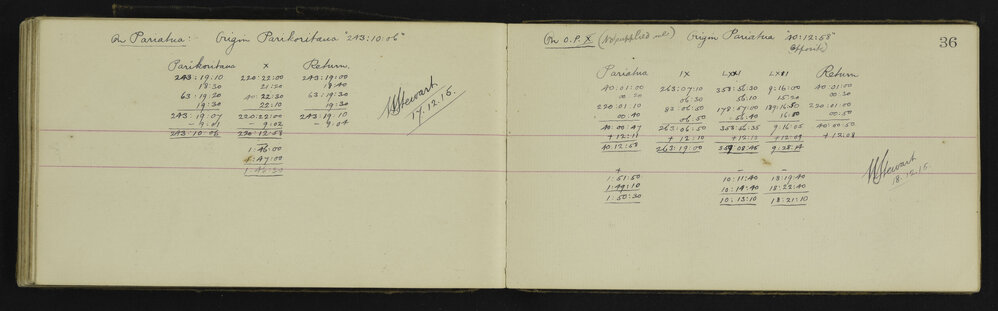 On Pariatua: Origin Parikoritaua "243:10:06"
Parikoritaua X Return.
243:19:10 220:22:00 243:19:00
18:30 21:20 18:40
63:19:20 40:22:30 63:19:30
19:30 22:10 19:30
243:19:07 220:22:00 243:19:10
- 9:01 - 9:02 - 9:04
243:10:06 220:12:58
1:46:00
1:47:00
1:46:30
Stewart
17.12.15.
36
On O.P. X (Not supplied me) Origin Pariatua "40:12:58"
Opposite
Pariatua IX LXXI LXXI Return
40:01:00 263:07:10 358:56:30 9:16:00 40:01:00
00:20 06:30 56:10 15:20 00:30
220:01:10 83:06:50 178:57:00 189:16:50 220:01:00
00:40 06:50 56:40 16:50 00:50
40:00:47 263:06:50 358:56:35 9:16:05 40:00:50
+12:11 +12:10 +12:12 +12:09 +12:08
40:12:58 263:19:00 359:08:45 9:28:14
+ - -
1:51:50 10:11:40 18:19:40
1:49:10 10:14:40 18:22:40
1:50:30 10:13:10 18:21:10
Stewart
18.12.15.